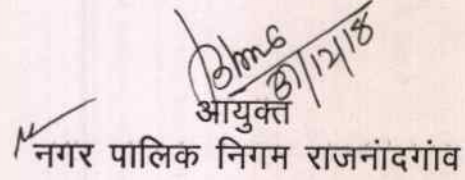 31/12/18
आयुक्त
नगर पालिक निगम राजनांदगांव